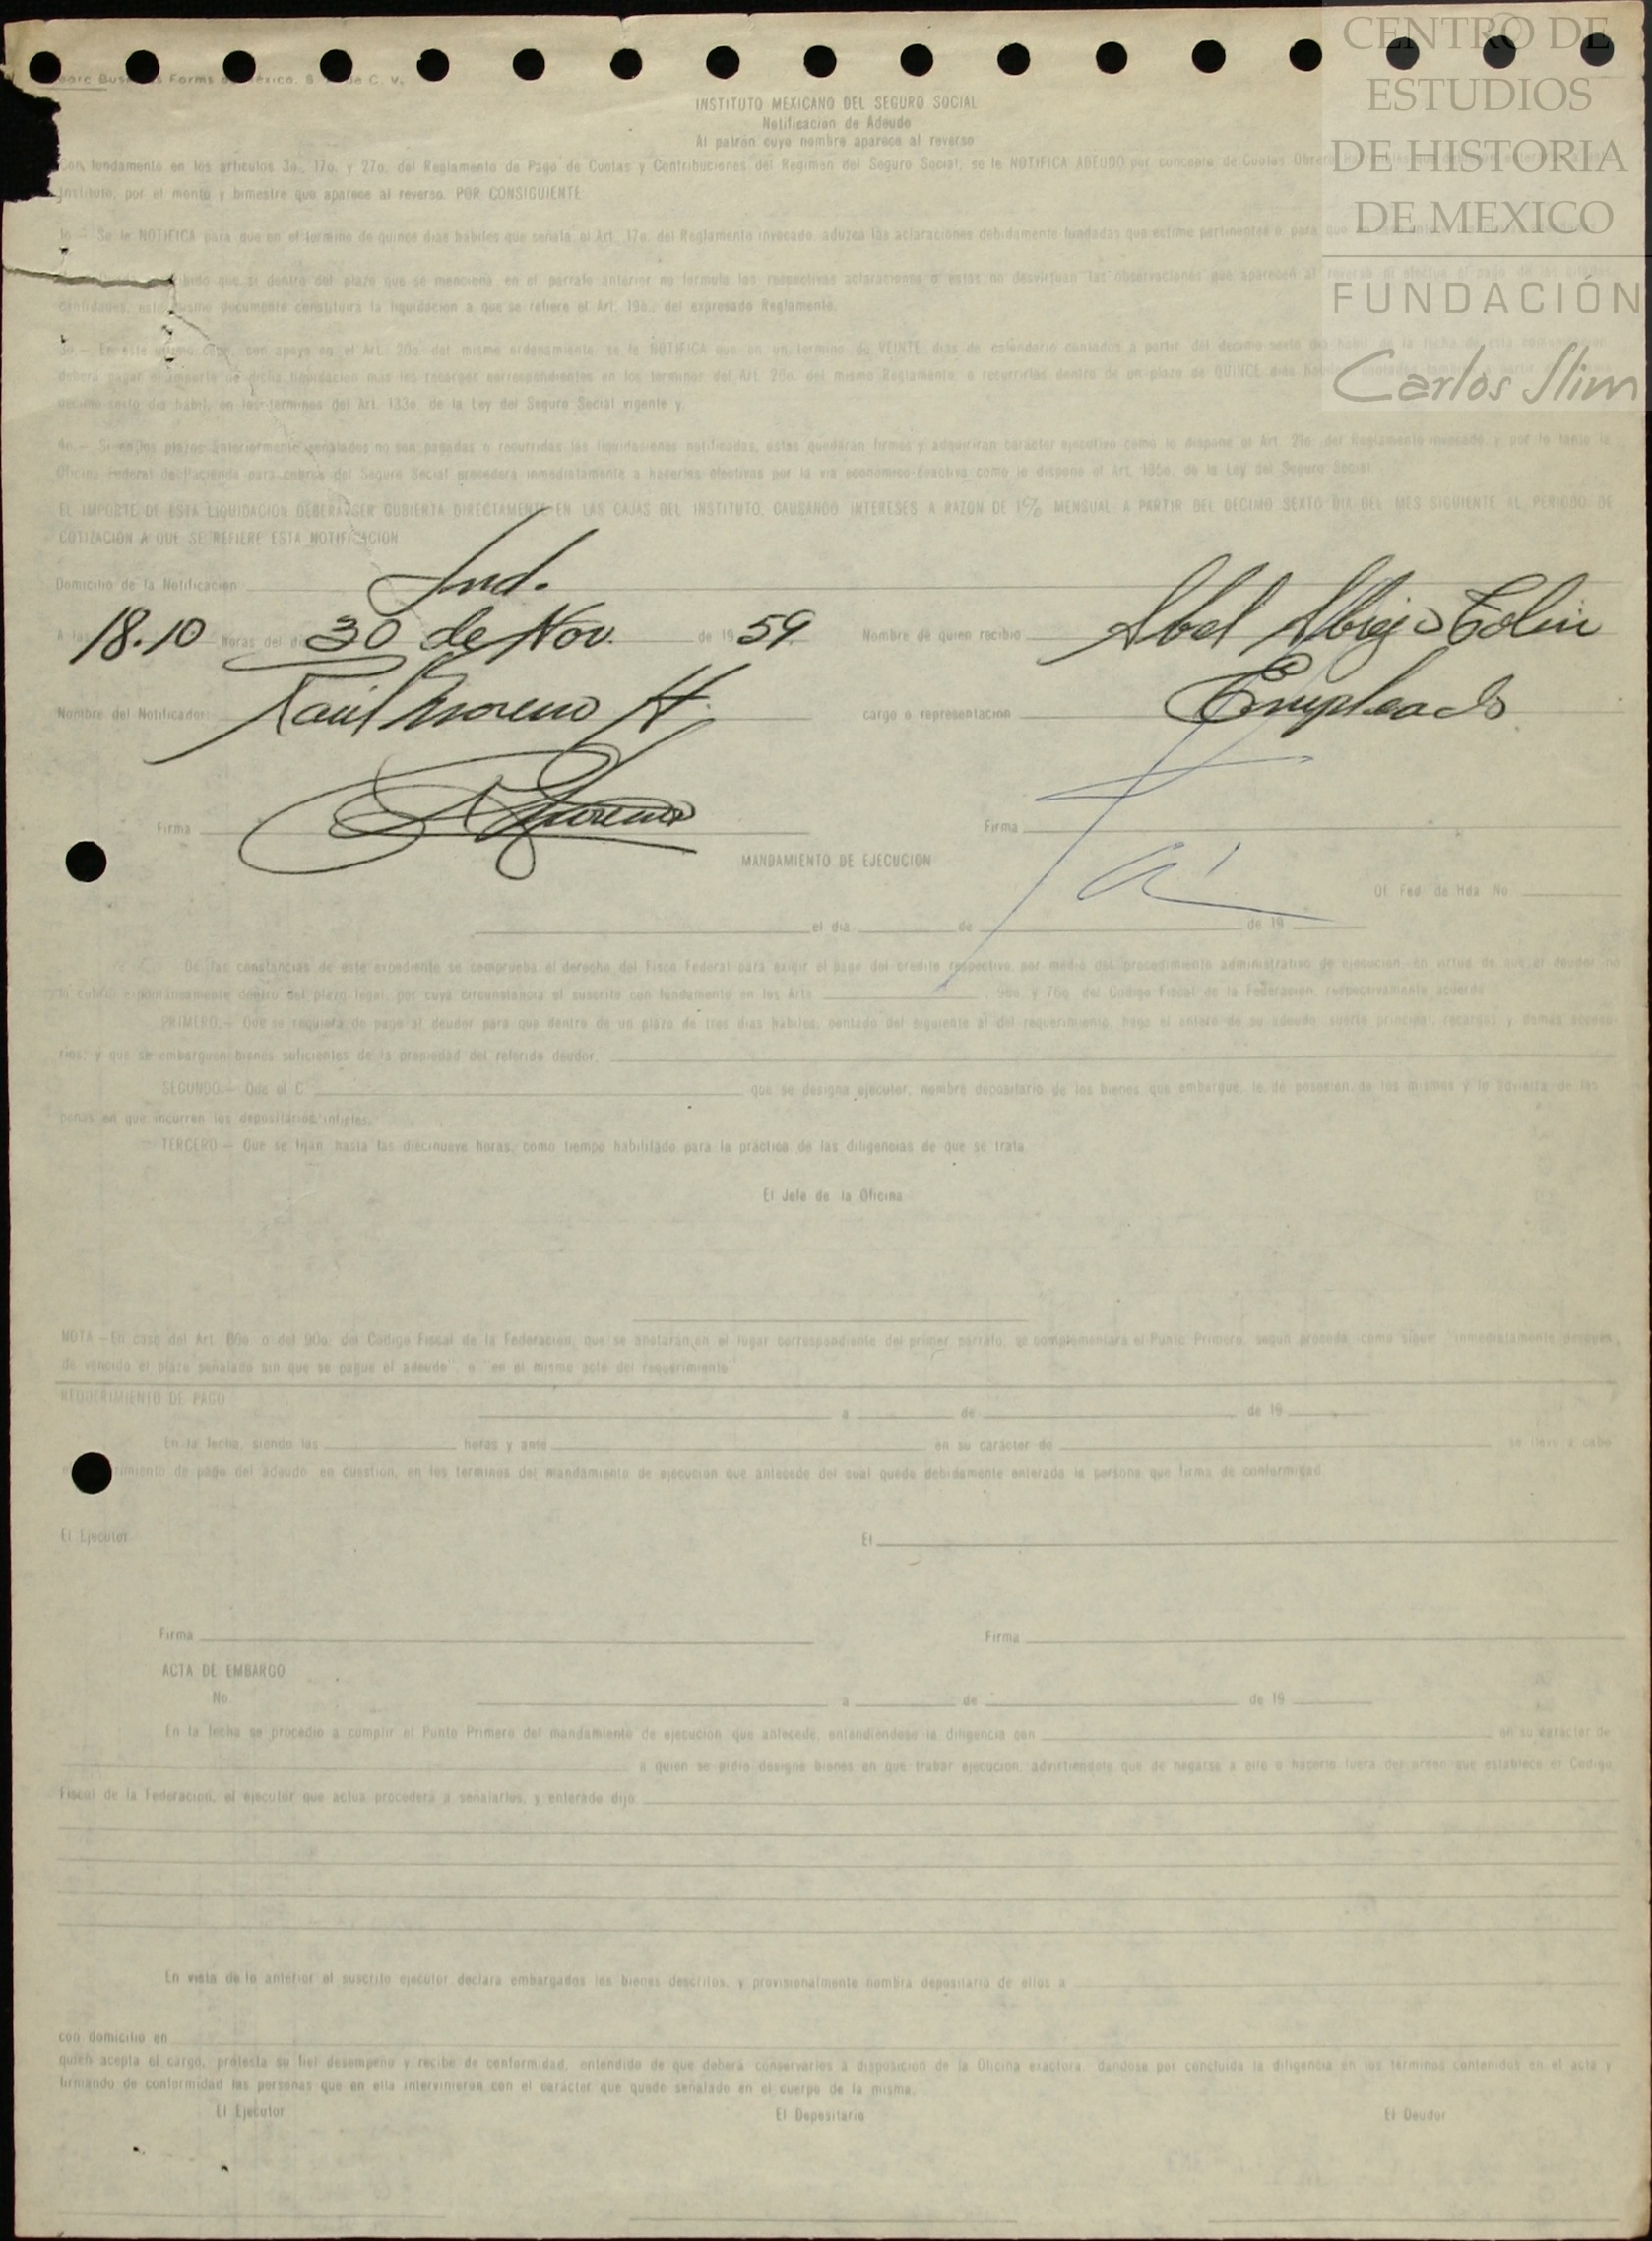 Forms de México, S. de C. V.
CENTRO DE
ESTUDIOS
DE HISTORIA
DE MEXICO
FUNDACIÓN
Carlos Slim
INSTITUTO MEXICANO DEL SEGURO SOCIAL
Notificacion de Adeudo
Al patrón cuyo nombre aparece al reverso
Con fundamento en los articulos 3o., 17o. y 27o. del Reglamento de Pago de Cuotas y Contribuciones del Regimen del Seguro Social, se le NOTIFICA ADEUDO por concepto de Cuotas
Instituto, por el monto y bimestre que aparece al reverso. POR CONSIGUIENTE
1o.- Se le NOTIFICA para que en el termino de quince dias habiles que señala el Art. 17o. del Reglamento invocado, aduzca las aclaraciones debidamente fundadas que estime pertinentes o para que
que si dentro del plazo que se menciona en el parrafo anterior no formula las respectivas aclaraciones o estas no desvirtuan las observaciones que aparecen al reverso
cantidades, este mismo documento constituira la liquidacion a que se refiere el Art. 19o. del expresado Reglamento.
3o.- En este mismo caso, con apoyo en el Art. 20o. del mismo ordenamiento, se le NOTIFICA que en un termino de VEINTE dias de calendario contados a partir del decimo sexto dia habil de la fecha de esta
debera pagar el importe de dicha liquidacion mas los recargos correspondientes en los terminos del Art. 26o. del mismo Reglamento, o recurrirlas dentro de un plazo de QUINCE dias
decimo sexto dia habil, en los terminos del Art. 133o. de la Ley del Seguro Social vigente y
4o.- Si en los plazos anteriormente señalados no son pagadas o recurridas las liquidaciones notificadas, estas quedaran firmes y adquiriran caracter ejecutivo como lo dispone el Art. 21o. del Reglamento invocado, y por lo tanto la
Oficina Federal de Hacienda para cobros del Seguro Social procedera inmediatamente a hacerlas efectivas por la via economico-coactiva como lo dispone el Art. 135o. de la Ley del Seguro Social.
EL IMPORTE DE ESTA LIQUIDACION DEBERA SER CUBIERTA DIRECTAMENTE EN LAS CAJAS DEL INSTITUTO, CAUSANDO INTERESES A RAZON DE 1% MENSUAL A PARTIR DEL DECIMO SEXTO DIA DEL MES SIGUIENTE AL PERIODO DE
COTIZACION A QUE SE REFIERE ESTA NOTIFICACION
Domicilio de la Notificacion Ind.
A las 18.10 horas del dia 30 de Nov. de 19 59 Nombre de quien recibio Abel Tolin
Nombre del Notificador Raúl Moreno H. cargo o representacion Empleado
Firma Firma
MANDAMIENTO DE EJECUCION
Of. Fed. de Hda. No
el dia de de 19
De las constancias de este expediente se comprueba el derecho del Fisco Federal para exigir el pago del credito respectivo, por medio del procedimiento administrativo de ejecucion en virtud de que el deudor no
lo cubrio espontáneamente dentro del plazo legal, por cuya circunstancia el suscrito con fundamento en los Arts , y 76o. del Codigo Fiscal de la Federacion, respectivamente acuerda
PRIMERO.- Que se requiera de pago al deudor para que dentro de un plazo de tres dias habiles, contado del siguiente al del requerimiento, haga el entero de su adeudo, suerte principal, recargos y demas acceso-
rios; y que se embarguen bienes suficientes de la propiedad del referido deudor.
SEGUNDO.- Que el C que se designa ejecutor, nombre depositario de los bienes que embargue, le de posesion de los mismos y le advierta de las
penas en que incurren los depositarios infieles.
TERCERO.- Que se fijan hasta las diecinueve horas, como tiempo habilitado para la practica de las diligencias de que se trata
El Jefe de la Oficina
NOTA.-En caso del Art. 86o. o del 90o. del Codigo Fiscal de la Federacion, que se anotaran en el lugar correspondiente del primer parrafo, se complementara el Punto Primero, segun proceda, como sigue "inmediatamente despues,
de vencido el plazo señalado sin que se pague el adeudo", o "en el mismo acto del requerimiento"
REQUERIMIENTO DE PAGO
a de de 19
En la fecha, siendo las horas y ante en su carácter de se llevo a cabo
de pago del adeudo en cuestion, en los terminos del mandamiento de ejecucion que antecede del cual quedo debidamente enterada la persona que firma de conformidad
El Ejecutor El
Firma Firma
ACTA DE EMBARGO
No a de de 19
En la fecha se procedio a cumplir el Punto Primero del mandamiento de ejecucion que antecede, entendiendose la diligencia con en su caracter de
a quien se pidio designe bienes en que trabar ejecucion, advirtiendole que de negarse a ello o hacerlo fuera del orden que establece el Codigo
Fiscal de la Federacion, el ejecutor que actua procedera a señalarlos, y enterado dijo
En vista de lo anterior el suscrito ejecutor declara embargados los bienes descritos, y provisionalmente nombra depositario de ellos a
con domicilio en
quien acepta el cargo, protesta su fiel desempeño y recibe de conformidad, entendido de que debera conservarlos a disposicion de la Oficina exactora, dandose por concluida la diligencia en los terminos contenidos en el acta y
firmando de conformidad las personas que en ella intervinieron con el caracter que quedo señalado en el cuerpo de la misma.
El Ejecutor El Depositario El Deudor